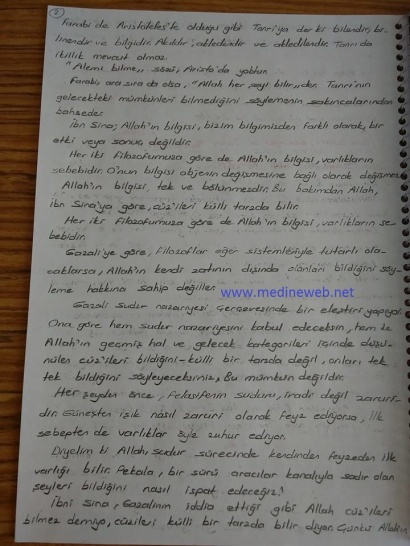 5
Farabi de Aristoteles'te olduğu gibi Tanrı'ya der ki bilendir, bi-
linendir ve bilgidir. Akıldır, akledendir ve akledilendir. Tanrı'da
ikilik mevcut olmaz.
"Alemi bilme,, sözü, Aristo'da yoktur.
Farabi ara sıra da olsa, "Allah her şeyi bilir,, der. Tanrı'nın
gelecekteki mümkünleri bilmediğini söylemenin sakıncalarından
bahseder.
İbn Sina; Allah'ın bilgisi, bizim bilgimizden farklı olarak, bir
etki veya sonuç değildir.
Her iki filozofumuza göre de Allah'ın bilgisi, varlıkların
sebebidir. O'nun bilgisi objenin değişmesine bağlı olarak değişmez
Allah'ın bilgisi, tek ve bölünmezdir. Bu bakımdan Allah,
İbn Sina'ya göre, cüz'ileri külli tarzda bilir.
Her iki Filozofumuza göre de Allah'ın bilgisi, varlıkların se-
bebidir.
Gazali'ye göre, filozoflar eğer sistemleriyle tutarlı ola-
caklarsa, Allah'ın kendi zatının dışında olanları bildiğini söy-
leme hakkına sahip değiller.
www.medineweb.net
Gazali sudur nazariyesi çerçevesinde bir eleştiri yapıyor.
Ona göre hem sudur nazariyesini kabul edeceksin, hem de
Allah'ın geçmiş hal ve gelecek kategorileri içinde düşü-
nülen cüz'ileri bildiğini-külli bir tarzda değil, onları tek
tek bildiğini söyleyeceksiniz, Bu mümkün değildir.
Her şeyden önce, felasifenin suduru, iradi değil zaruri-
dir. Güneşten ışık nasıl zaruri olarak feyz ediyorsa, ilk
sebepten de varlıklar öyle zuhur ediyor.
Diyelim ki Allah, sudur sürecinde kendinden feyzeden ilk
varlığı bilir. Pekala, bir sürü aracılar kanalıyla sadır olan
şeyleri bildiğini nasıl ispat edeceğiz?
İbni Sina, Gazalinin iddia ettiği gibi Allah cüz'ileri
bilmez demiyor, cüzileri külli bir tarzda bilir diyor. Çünkü Allah'ın